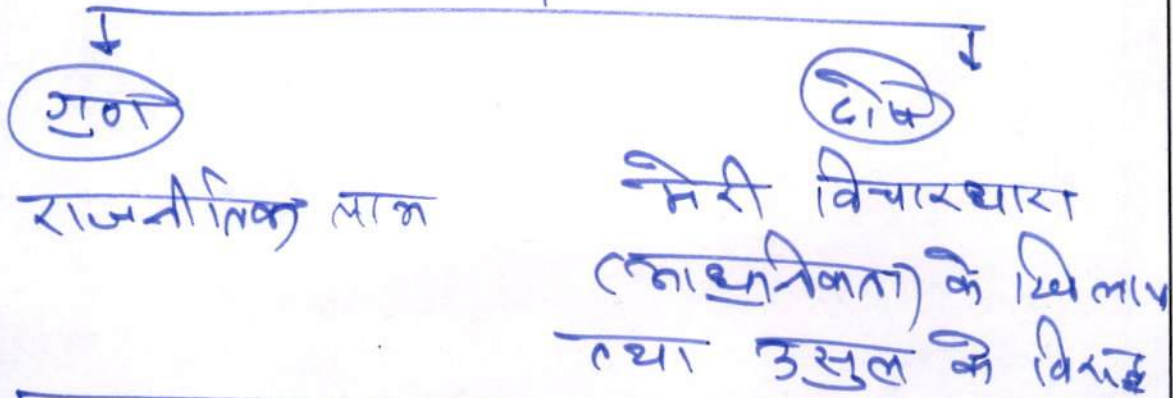 गुण दोष
राजनीतिक लाभ मेरी विचारधारा
(आधुनिकता) के खिलाफ
तथा उसुल के विरुद्ध